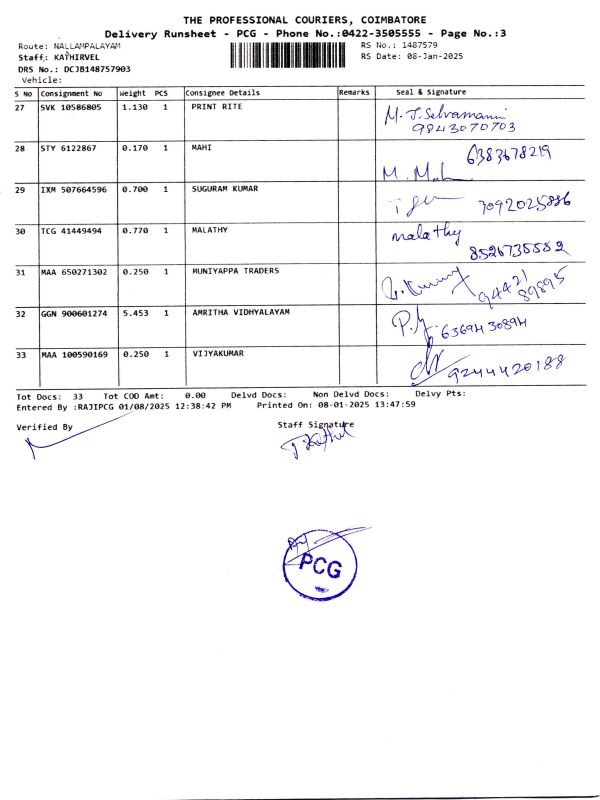 THE PROFESSIONAL COURIERS, COIMBATORE
Delivery Runsheet - PCG - Phone No.:0422-3505555 - Page No.:3
Route: NALLAMPALAYAM RS No.: 1487579
Staff: KATHIRVEL RS Date: 08-Jan-2025
DRS No.: DCJB148757903
Vehicle:
S No Consignment No Weight PCS Consignee Details Remarks Seal & Signature
27 SVK 10586805 1.130 1 PRINT RITE M. J. Selvamanni
9843070703
28 STY 6122867 0.170 1 MAHI 6383678219
29 IXM 507664596 0.700 1 SUGURAM KUMAR 7092025886
30 TCG 41449494 0.770 1 MALATHY malathy
8526735582
31 MAA 650271302 0.250 1 MUNIYAPPA TRADERS 94421
89895
32 GGN 900601274 5.453 1 AMRITHA VIDHYALAYAM 6369430894
33 MAA 100590169 0.250 1 VIJYAKUMAR 9244420188
Tot Docs: 33 Tot COD Amt: 0.00 Delvd Docs: Non Delvd Docs: Delvy Pts:
Entered By :RAJIPCG 01/08/2025 12:38:42 PM Printed On: 08-01-2025 13:47:59
Verified By Staff Signature
PCG